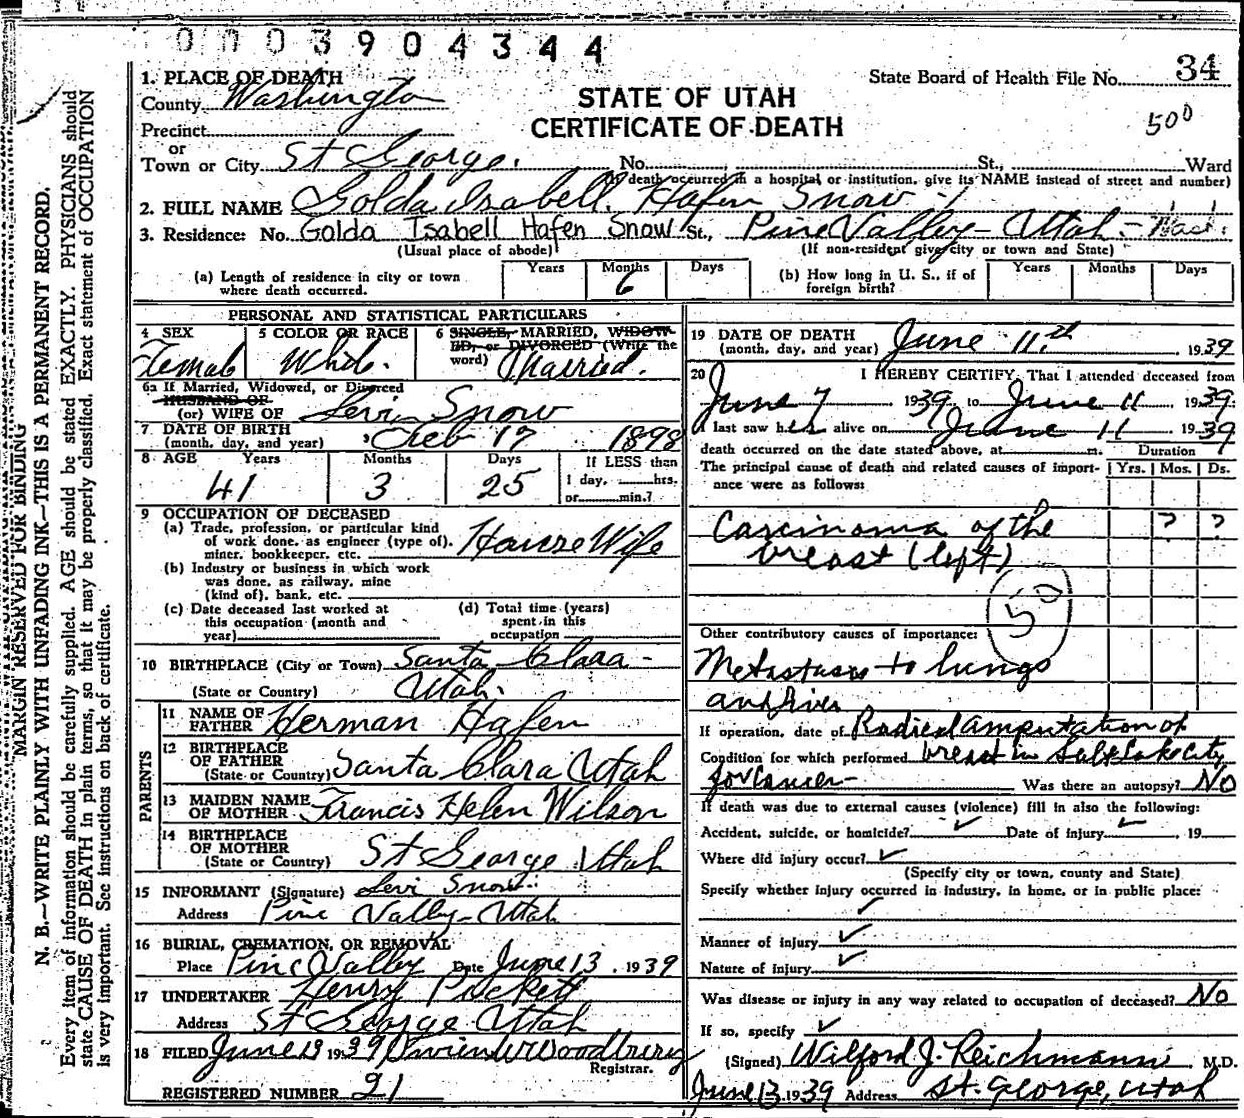 0003904344
34
State Board of Health File No.
500
STATE OF UTAH
CERTIFICATE OF DEATH
1. PLACE OF DEATH
County Washington
Precinct
or
Town or City St George. No. St., Ward
(If death occurred in a hospital or institution, give its NAME instead of street and number)
2. FULL NAME Golda Isabell Hafen Snow
3. Residence: No. Golda Isabell Hafen Snow St., Pine Valley - Utah - Wash.
(Usual place of abode) (If non-resident give city or town and State)
(a) Length of residence in city or town where death occurred. Years Months 6 Days
(b) How long in U. S., if of foreign birth? Years Months Days
PERSONAL AND STATISTICAL PARTICULARS
4 SEX Female
5 COLOR OR RACE White
6 SINGLE, MARRIED, WIDOWED, or DIVORCED (Write the word) Married.
6a If Married, Widowed, or Divorced
HUSBAND OF
(or) WIFE OF Levi Snow
7 DATE OF BIRTH
(month, day, and year) Feb 17 1898
8 AGE Years 41 Months 3 Days 25 If LESS than
1 day, hrs.
or min.?
9 OCCUPATION OF DECEASED
(a) Trade, profession, or particular kind
of work done, as engineer (type of),
miner, bookkeeper, etc. House Wife
(b) Industry or business in which work
was done, as railway, mine
(kind of), bank, etc.
(c) Date deceased last worked at
this occupation (month and
year)
(d) Total time (years)
spent in this
occupation
10 BIRTHPLACE (City or Town) Santa Clara -
(State or Country) Utah.
PARENTS
11 NAME OF FATHER Herman Hafen
12 BIRTHPLACE OF FATHER
(State or Country) Santa Clara Utah
13 MAIDEN NAME OF MOTHER Francis Helen Wilson
14 BIRTHPLACE OF MOTHER
(State or Country) St George Utah
15 INFORMANT (Signature) Levi Snow
Address Pine Valley - Utah
16 BURIAL, CREMATION, OR REMOVAL
Place Pine Valley Date June 13, 1939
17 UNDERTAKER Henry Pickett
Address St George Utah
18 FILED June 13 1939 Woodbury
Registrar.
REGISTERED NUMBER 21
19 DATE OF DEATH
(month, day, and year) June 11th 1939
20 I HEREBY CERTIFY, That I attended deceased from
June 7 1939, to June 11 1939.
I last saw her alive on June 11 1939
death occurred on the date stated above, at m.
The principal cause of death and related causes of importance were as follows:
Duration
Yrs. Mos. Ds.
Carcinoma of the ? ?
breast (left)
50
Other contributory causes of importance:
Metastases to lungs
and liver
If operation, date of Radical amputation of
Condition for which performed breast in Salt Lake City
for cancer Was there an autopsy? No
If death was due to external causes (violence) fill in also the following:
Accident, suicide, or homicide? Date of injury , 19
Where did injury occur?
(Specify city or town, county and State)
Specify whether injury occurred in industry, in home, or in public place:
Manner of injury
Nature of injury
Was disease or injury in any way related to occupation of deceased? No
If so, specify
(Signed) Wilford J. Reichmann M.D.
June 13 1939 Address St. George, Utah
MARGIN RESERVED FOR BINDING
N. B.—WRITE PLAINLY WITH UNFADING INK—THIS IS A PERMANENT RECORD.
Every item of information should be carefully supplied. AGE should be stated EXACTLY. PHYSICIANS should
state CAUSE OF DEATH in plain terms, so that it may be properly classified. Exact statement of OCCUPATION
is very important. See instructions on back of certificate.